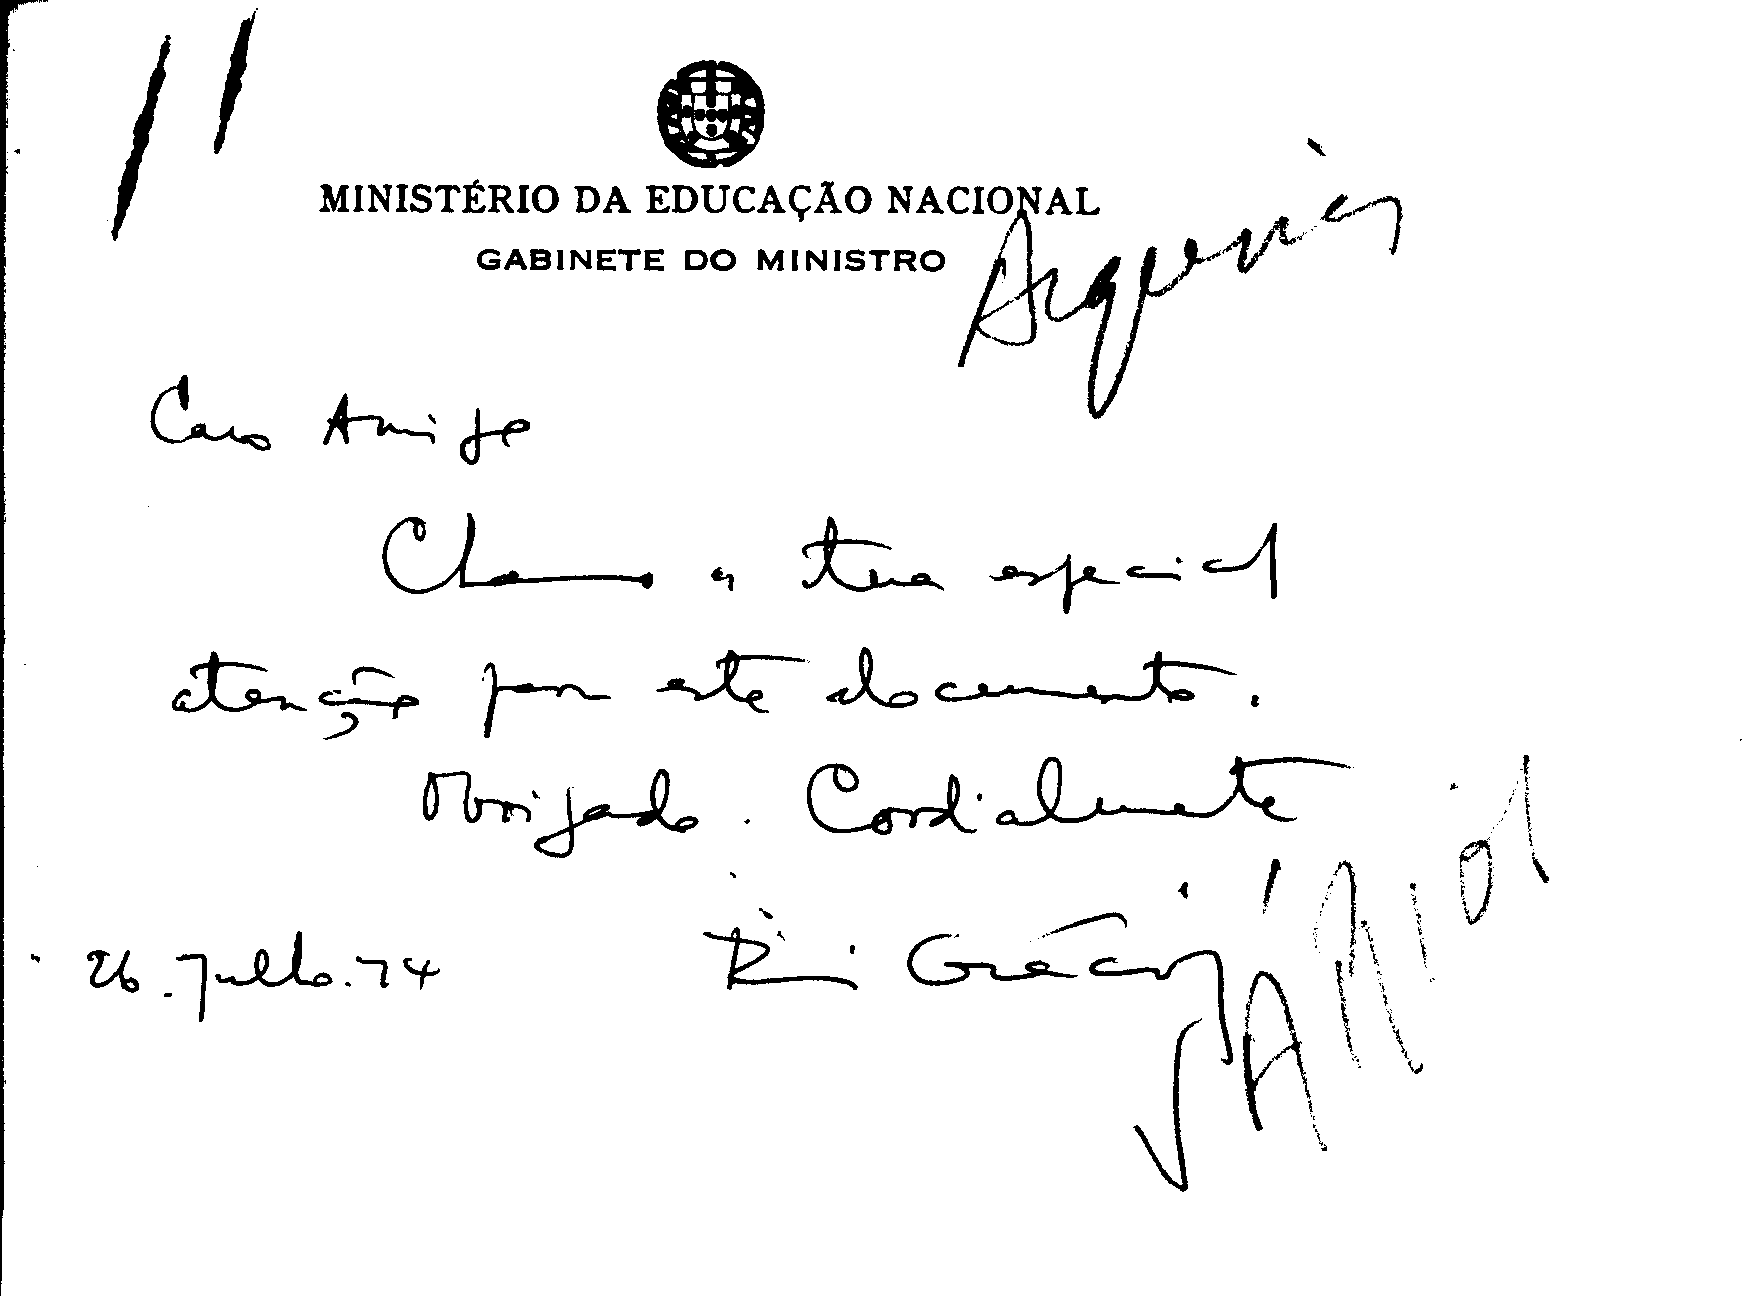 MINISTÉRIO DA EDUCAÇÃO NACIONAL
GABINETE DO MINISTRO
Caro Amigo
Chamo a tua especial
atenção para este documento.
Obrigado. Cordialmente
26.Julho.74 Rui Grácio